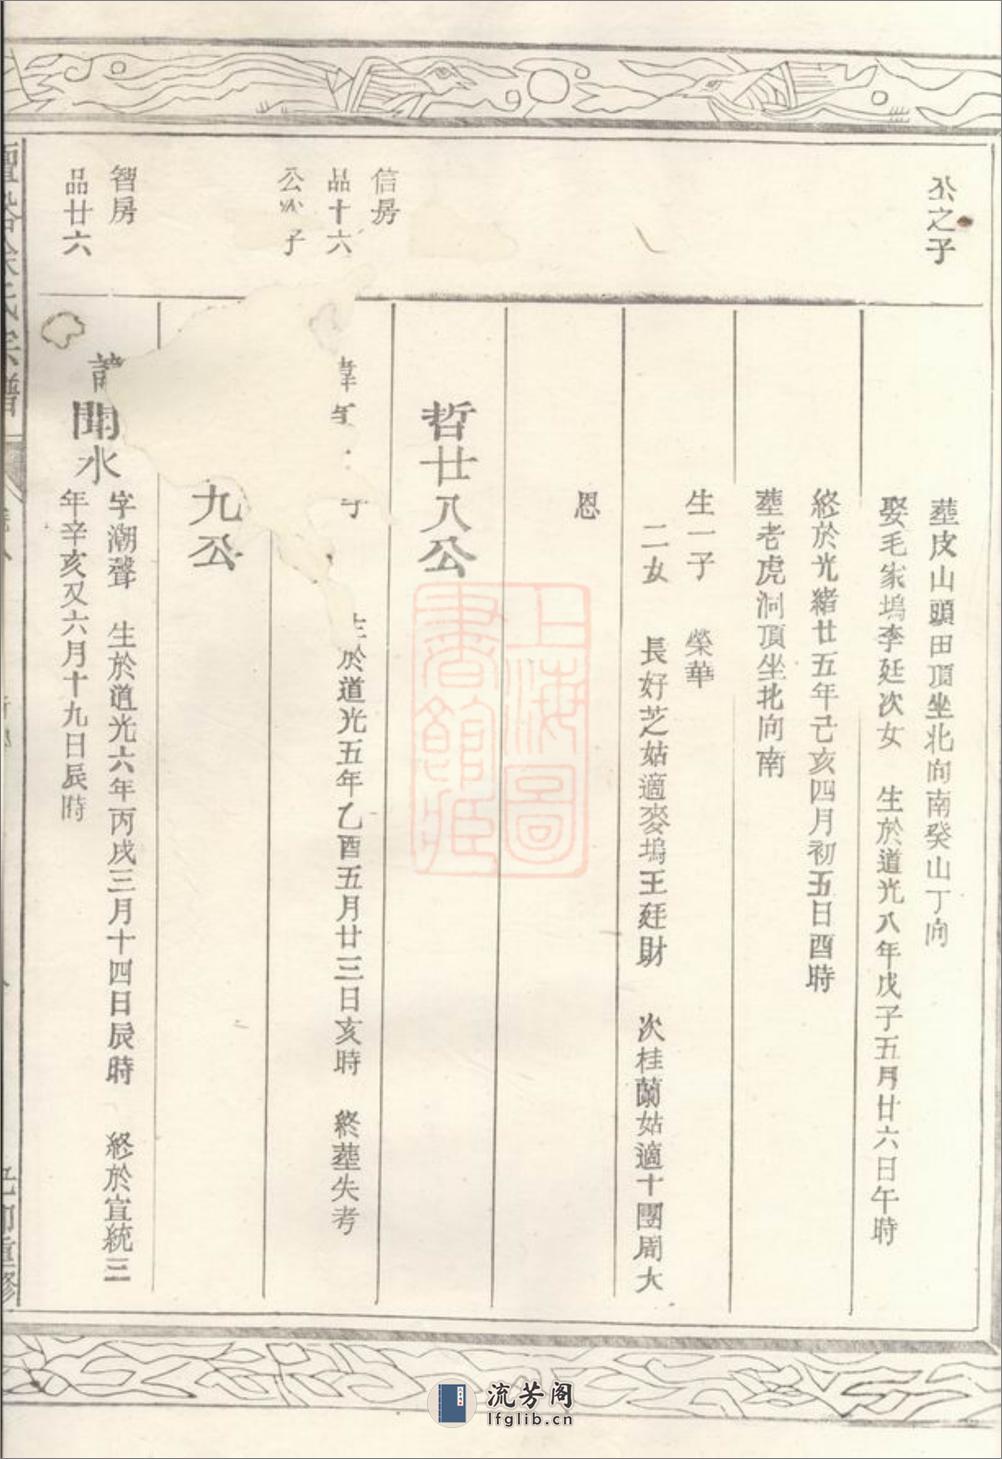 公之子
葬皮山頭田頂坐北向南癸山丁向
娶毛家塢李廷次女 生於道光八年戊子五月廿六日午時
終於光緒廿五年己亥四月初五日酉時
葬老虎洞頂坐北向南
生一子 榮華
二女 長好芝姑適麥塢王廷財 次桂蘭姑適十團周大
恩
哲廿八公
信房
品十六
公 子
生於道光五年乙酉五月廿三日亥時 終葬失考
九公
智房
品廿六
聞水
字潮聲 生於道光六年丙戌三月十四日辰時 終於宣統三
年辛亥又六月十九日辰時
氏宗譜
重修
上海圖
書館藏
流芳阁
lfglib.cn